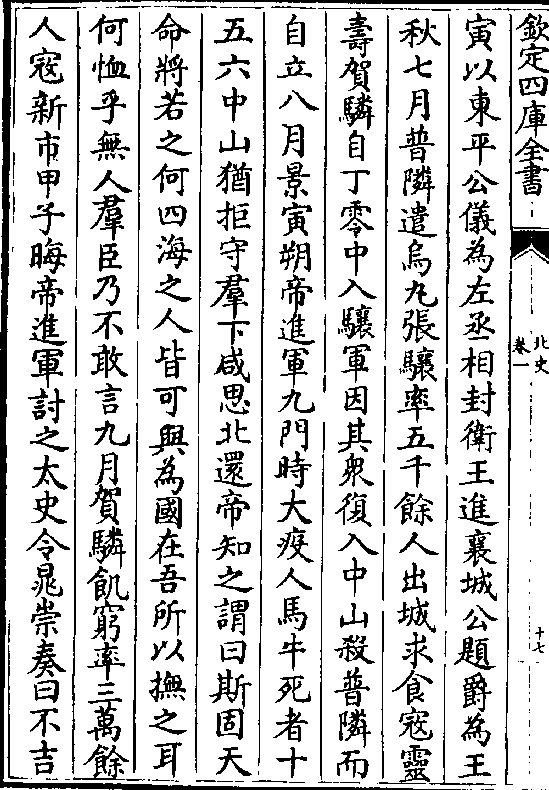 欽定四庫全書
北史
卷一
十七
寅以東平公儀為左丞相封衛王進襄城公題爵為王
秋七月普隣遣烏丸張驤率五千餘人出城求食宼靈
壽賀驎自丁零中入驤軍因其衆復入中山殺普隣而
自立八月景寅朔帝進軍九門時大疫人馬牛死者十
五六中山猶拒守羣下咸思北還帝知之謂曰斯固天
命將若之何四海之人皆可與為國在吾所以撫之耳
何恤乎無人羣臣乃不敢言九月賀驎飢窮率三萬餘
人宼新市甲子晦帝進軍討之太史令鼂崇奏曰不吉